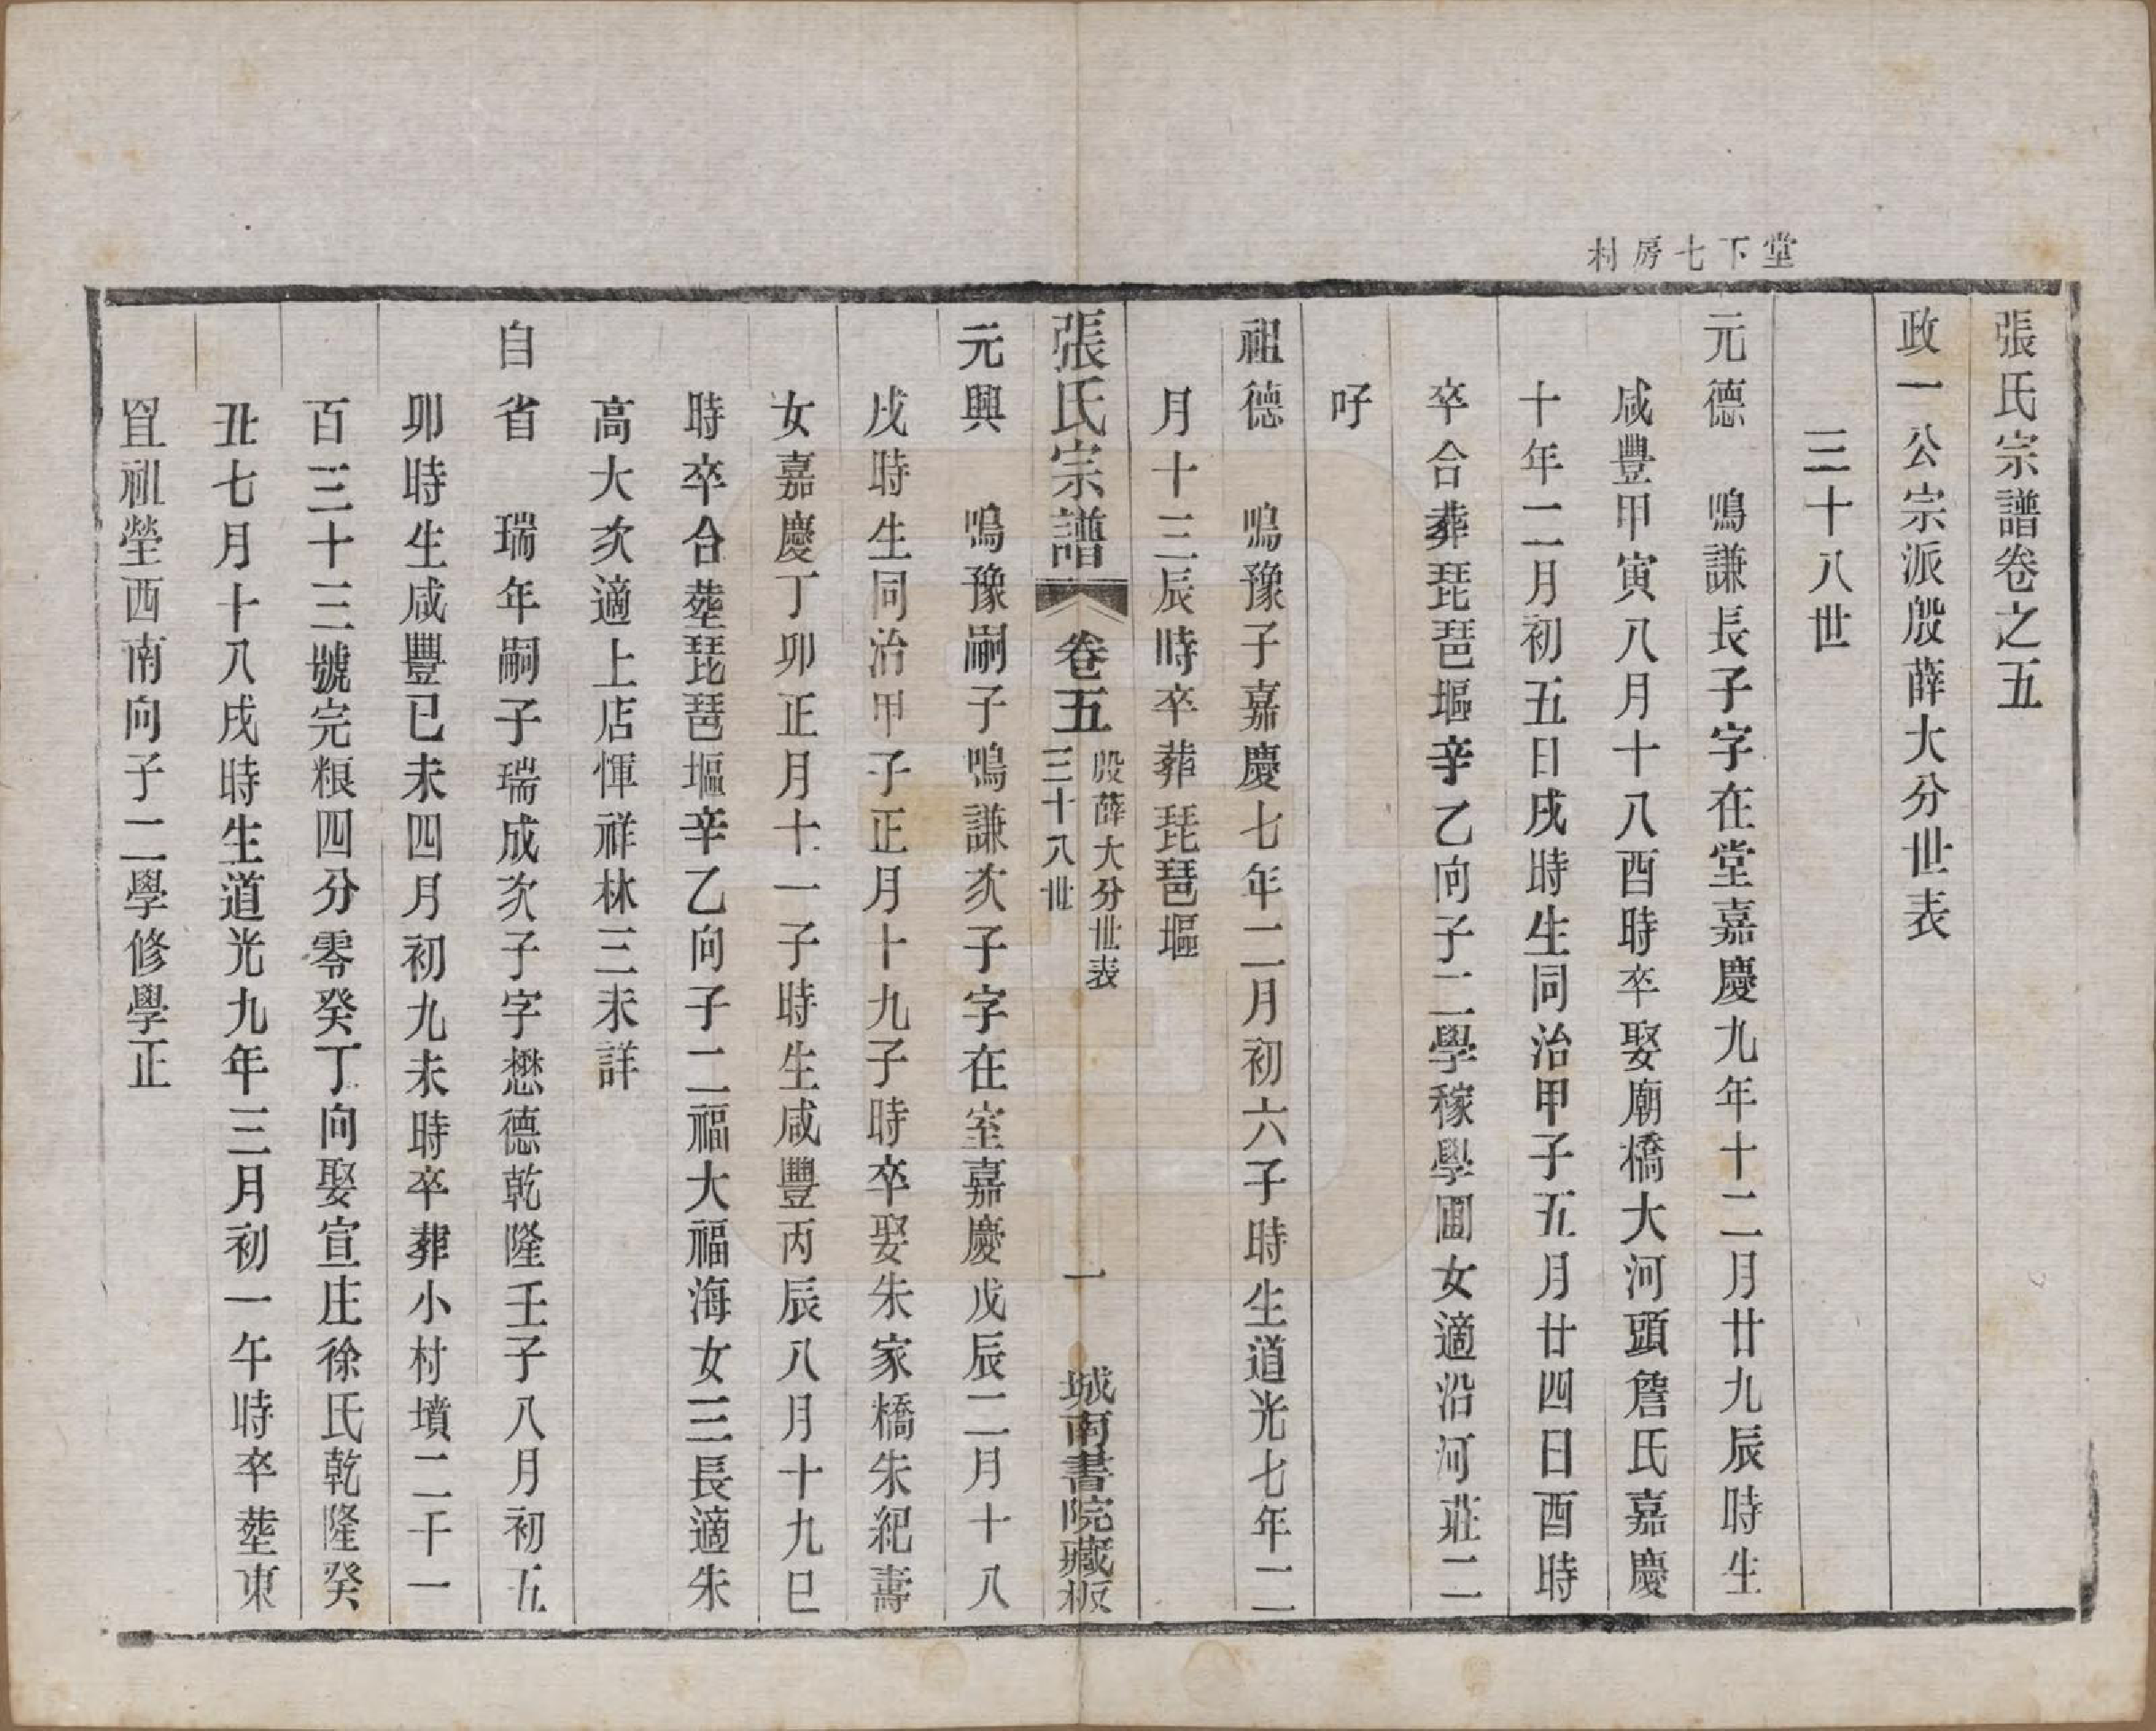 堂下七房村
張氏宗譜卷之五
政一公宗派殷薛大分世表
三十八世
元德　鳴謙長子字在堂嘉慶九年十二月廿九辰時生
咸豐甲寅八月十八酉時卒娶廟橋大河頭詹氏嘉慶
十年二月初五日戌時生同治甲子五月廿四日酉時
卒合葬琵琶塸辛乙向子二學稼學圃女適沿河莊二
吁
祖德　鳴豫子嘉慶七年二月初六子時生道光七年二
月十三辰時卒葬琵琶塸
張氏宗譜　卷五　殷薛大分世表　三十八世　一　城南書院藏板
元興　鳴豫嗣子鳴謙次子字在室嘉慶戊辰二月十八
戌時生同治甲子正月十九子時卒娶朱家橋朱紀壽
女嘉慶丁卯正月十一子時生咸豐丙辰八月十九巳
時卒合塟琵琶塸辛乙向子二福大福海女三長適朱
高大次適上店惲祥林三未詳
自省　瑞年嗣子瑞成次子字懋德乾隆壬子八月初五
卯時生咸豐已未四月初九未時卒葬小村墳二千一
百三十三號完粮四分零癸丁向娶宣庄徐氏乾隆癸
丑七月十八戌時生道光九年三月初一午時卒塟東
亘祖塋西南向子二學修學正